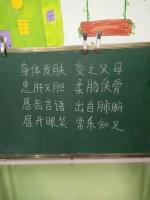 身体发肤 受之父母
忠肝义胆 柔肠侠骨
唇齿言语 出自肺腑
眉开眼笑 常乐知足